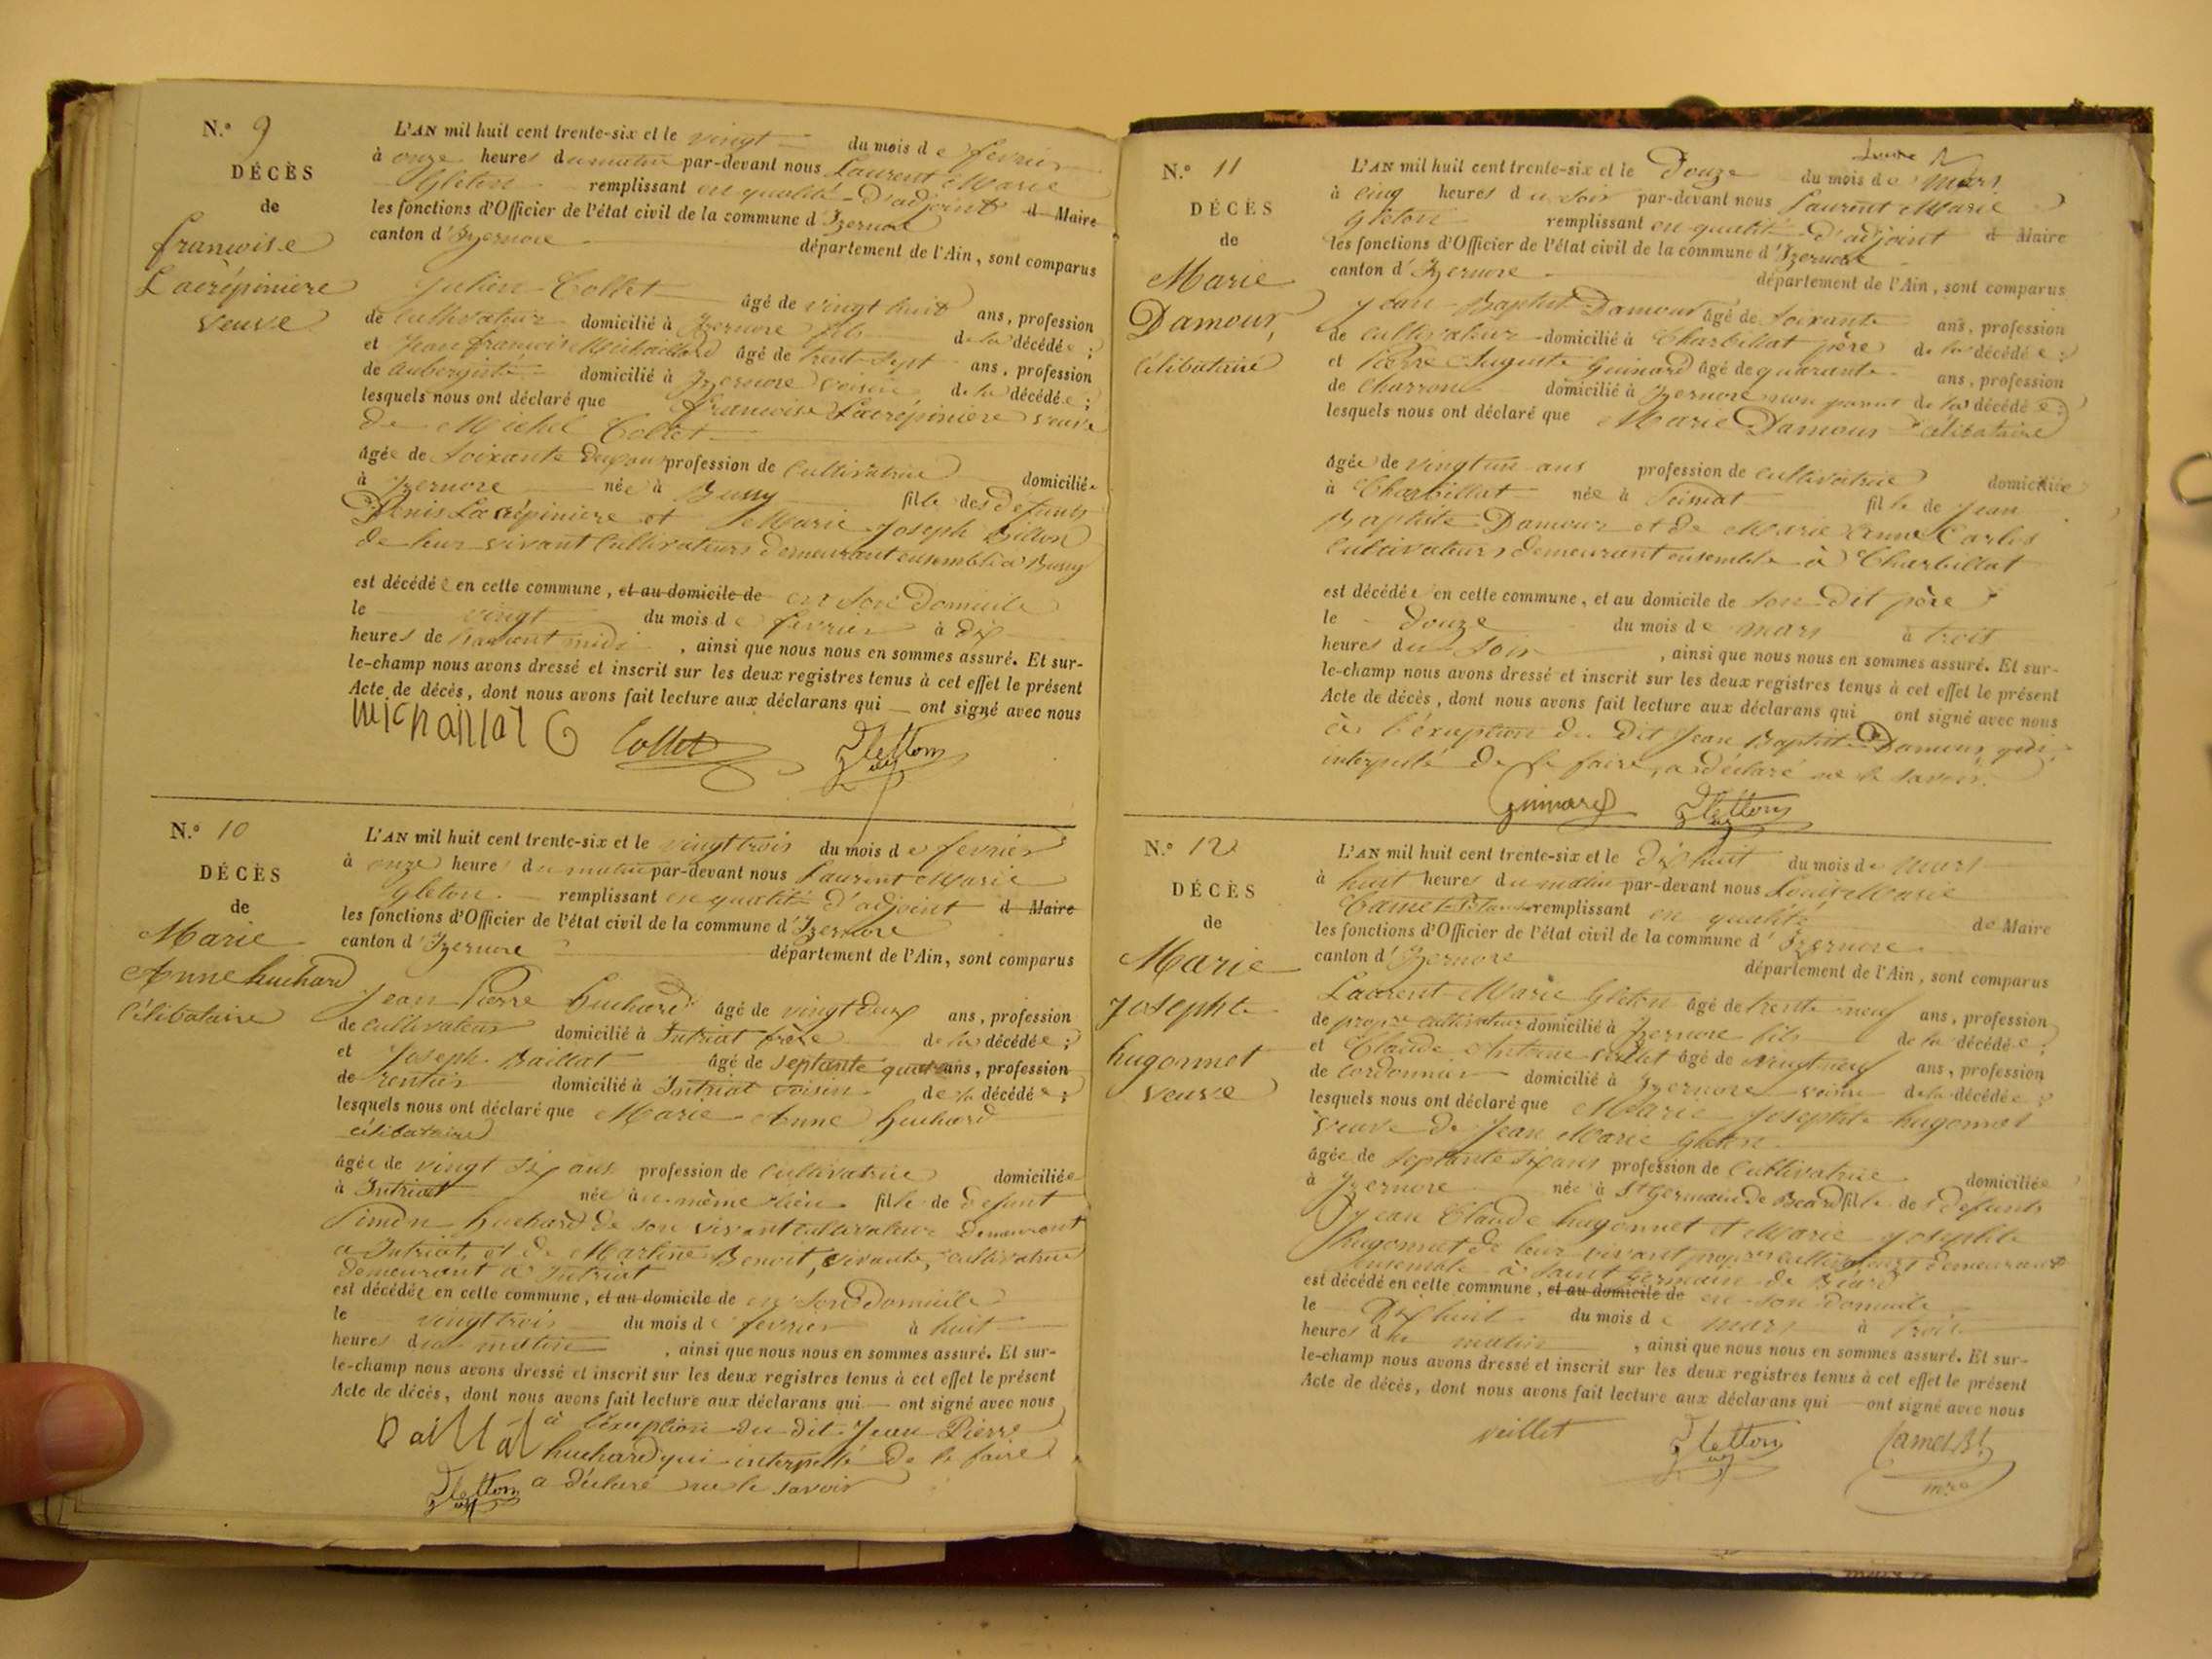 N.° 9
DÉCÈS
de
francoise
Lacrépiniere
veuve
L'AN mil huit cent trente-six et le vingt du mois de fevrier
à onze heures du matin par-devant nous Laurent Marie
Gleton remplissant en qualité d'adjoint d Maire
les fonctions d'Officier de l'état civil de la commune d'Izernore
canton d'Izernore département de l'Ain, sont comparus
Julien Collet âgé de vingt huit ans, profession
de Cultivateur domicilié à Izernore fils de la décédée;
et Jean francois Michaillard âgé de trent-sept ans, profession
de aubergiste domicilié à Izernore voisin de la décédée;
lesquels nous ont déclaré que francoise Lacrépiniere veuve
de Michel Collet
âgée de soixante deux ans profession de Cultivatrice domiciliée
à Izernore née à Bussy fille des defunts
Denis Lacrépiniere et Marie Joseph Billion
de leur vivant Cultivateurs demeurant ensemble à Bussy
est décédée en cette commune, et au domicile de en son Domicile
le vingt du mois de fevrier à dix
heures de avant midi, ainsi que nous nous en sommes assuré. Et sur-
le-champ nous avons dressé et inscrit sur les deux registres tenus à cet effet le présent
Acte de décès, dont nous avons fait lecture aux déclarans qui ont signé avec nous
Collet Gletton
N.° 10
DÉCÈS
de
Marie
Anne huchard
Célibataire
L'AN mil huit cent trente-six et le vingt trois du mois de fevrier
à onze heures du matin par-devant nous Laurent Marie
Gleton remplissant en qualité d'adjoint d Maire
les fonctions d'Officier de l'état civil de la commune d'Izernore
canton d'Izernore département de l'Ain, sont comparus
Jean Pierre huchard âgé de vingt deux ans, profession
de cultivateur domicilié à Intriat frère de la décédée;
et Joseph Baillat âgé de septante quatre ans, profession
de rentier domicilié à Intriat voisin de la décédée;
lesquels nous ont déclaré que Marie Anne huchard
célibataire
âgée de vingt six ans profession de Cultivatrice domiciliée
à Intriat née au même lieu fille de defunt
Simon huchard de son vivant cultivateur demeurant
a Intriat, et de Marline Benoit, vivante, cultivatrice
demeurant a Intriat
est décédée en cette commune, et au domicile de en son Domicile
le vingt trois du mois de fevrier à huit
heures du matin, ainsi que nous nous en sommes assuré. Et sur-
le-champ nous avons dressé et inscrit sur les deux registres tenus à cet effet le présent
Acte de décès, dont nous avons fait lecture aux déclarans qui ont signé avec nous
Baillat à l'exception du dit Jean Pierre
huchard qui interpellé de le faire
Gletton a déclaré ne le savoir
N.° 11
DÉCÈS
de
Marie
Damour,
célibataire
L'AN mil huit cent trente-six et le Douze du mois de mars
à cinq heures du soir par-devant nous Laurent Marie
Gleton remplissant en qualité d'adjoint d Maire
les fonctions d'Officier de l'état civil de la commune d'Izernore
canton d'Izernore département de l'Ain, sont comparus
Jean Baptiste Damour âgé de soixante ans, profession
de cultivateur domicilié à Charbillat père de la décédée;
et Pierre Auguste Guinard âgé de quarante ans, profession
de Charron domicilié à Izernore non parent de la décédée;
lesquels nous ont déclaré que Marie Damour célibataire
âgée de vingt un ans profession de cultivatrice domiciliée
à Charbillat née à Soissiat fille de Jean
Baptiste Damour et de Marie Anne Carlos
Cultivateurs demeurant ensemble à Charbillat
est décédée en cette commune, et au domicile de son dit père
le Douze du mois de mars à trois
heures du soir, ainsi que nous nous en sommes assuré. Et sur-
le-champ nous avons dressé et inscrit sur les deux registres tenus à cet effet le présent
Acte de décès, dont nous avons fait lecture aux déclarans qui ont signé avec nous
à l'exception du dit Jean Baptiste Damour qui
interpellé de le faire, a déclaré ne le savoir.
Guinard Gletton
N.° 12
DÉCÈS
de
Marie
Josephte
hugonnet
veuve
L'AN mil huit cent trente-six et le dix huit du mois de mars
à huit heures du matin par-devant nous Louis Marie
Camet remplissant en qualité de Maire
les fonctions d'Officier de l'état civil de la commune d'Izernore
canton d'Izernore département de l'Ain, sont comparus
Laurent Marie Gleton âgé de trente neuf ans, profession
de propre cultivateur domicilié à Izernore fils de la décédée;
et Claude Antoine veillet âgé de vingt neuf ans, profession
de Cordonnier domicilié à Izernore voisin de la décédée;
lesquels nous ont déclaré que Marie Josephte hugonnet
veuve de Jean Marie Gleton
âgée de septante six ans profession de Cultivatrice domiciliée
à Izernore née à St Germain de Beard fille des défunts
Jean Claude hugonnet et Marie Josephte
hugonnet de leur vivant propres cultivateurs demeurant
ensemble à Saint germain de Béard
est décédé en cette commune, et au domicile de en son domicile
le Dix huit du mois de mars à trois
heures du matin, ainsi que nous nous en sommes assuré. Et sur-
le-champ nous avons dressé et inscrit sur les deux registres tenus à cet effet le présent
Acte de décès, dont nous avons fait lecture aux déclarans qui ont signé avec nous
veillet Gletton Camet
mre